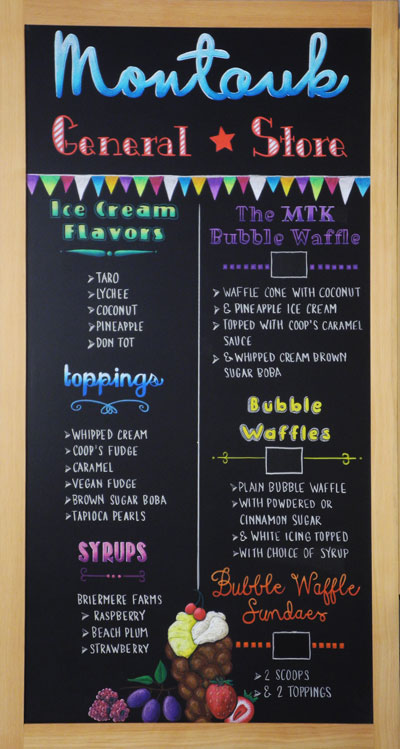 Montauk
General ★ Store
Ice Cream
Flavors
➢ TARO
➢ LYCHEE
➢ COCONUT
➢ PINEAPPLE
➢ DON TOT
toppings
➢ WHIPPED CREAM
➢ COOP'S FUDGE
➢ CARAMEL
➢ VEGAN FUDGE
➢ BROWN SUGAR BOBA
➢ TAPIOCA PEARLS
SYRUPS
BRIERMERE FARMS
➢ RASPBERRY
➢ BEACH PLUM
➢ STRAWBERRY
The MTK
Bubble Waffle
➢ WAFFLE CONE WITH COCONUT
➢ & PINEAPPLE ICE CREAM
➢ TOPPED WITH COOP'S CARAMEL
SAUCE
➢ & WHIPPED CREAM BROWN
SUGAR BOBA
Bubble
Waffles
➢ PLAIN BUBBLE WAFFLE
➢ WITH POWDERED OR
CINNAMON SUGAR
➢ & WHITE ICING TOPPED
➢ WITH CHOICE OF SYRUP
Bubble Waffle
Sundaes
➢ 2 SCOOPS
➢ & 2 TOPPINGS